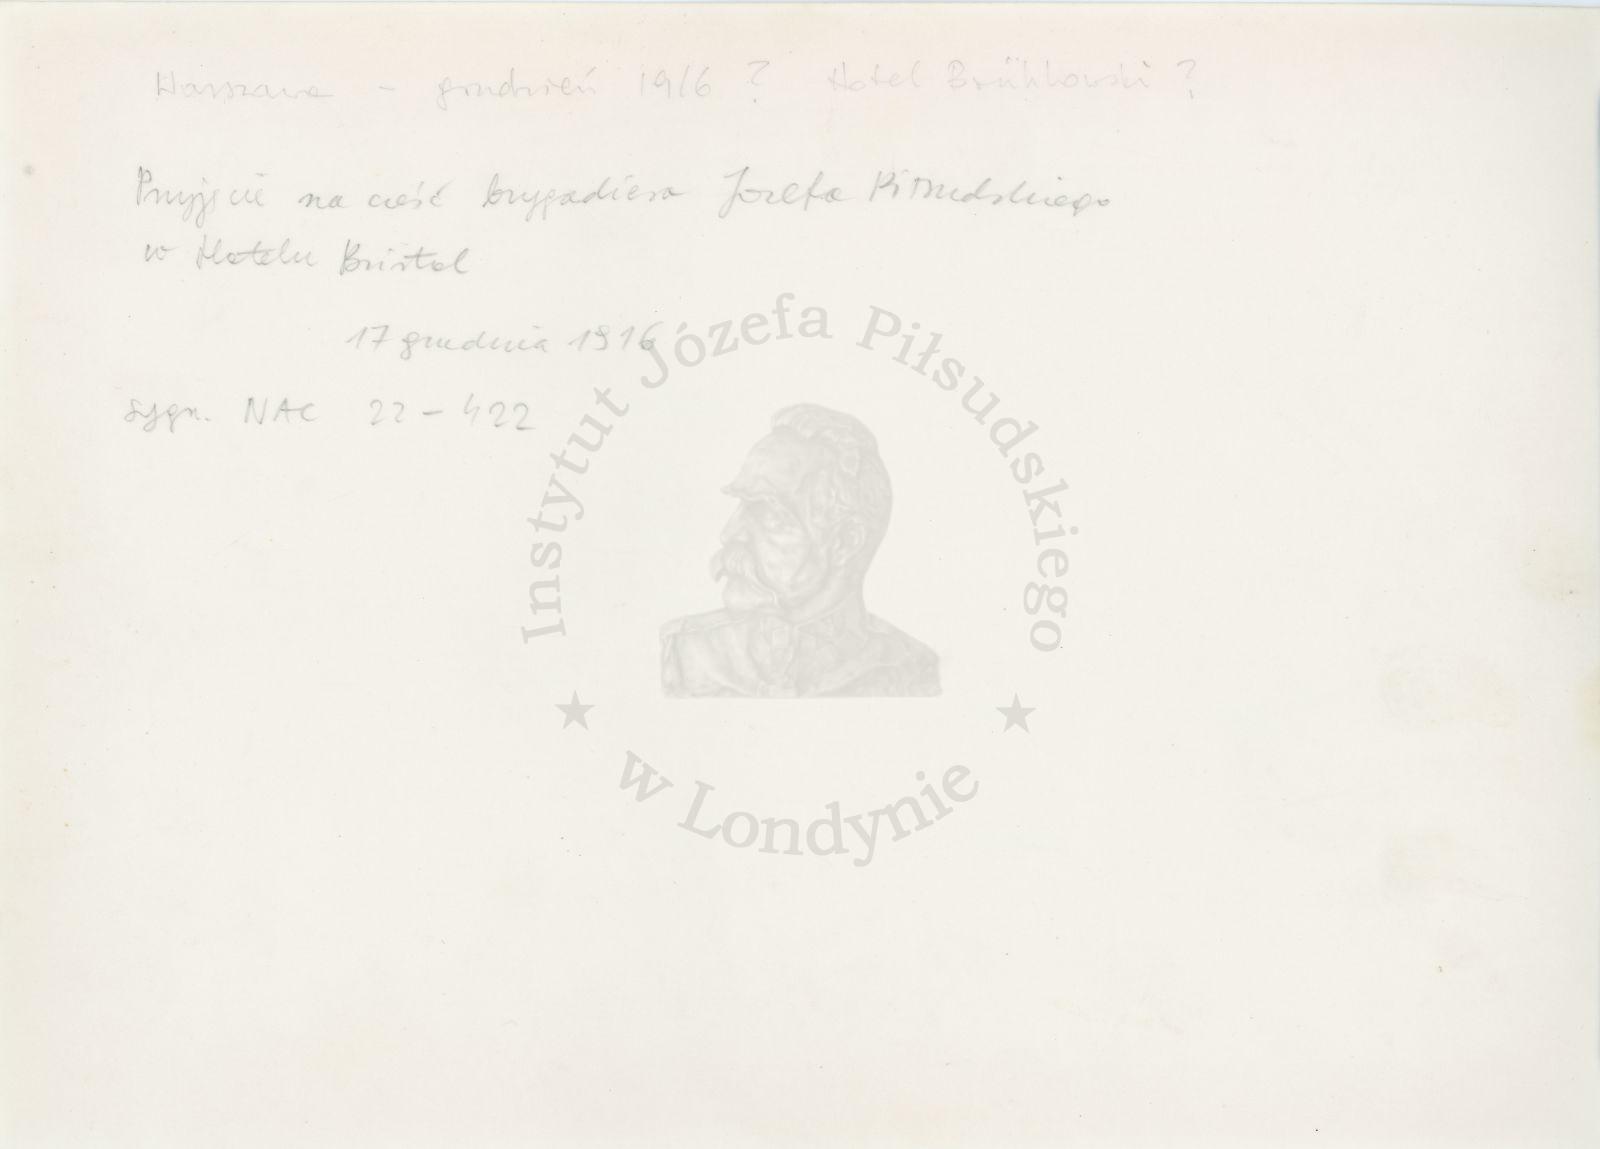 Warszawa - grudzień 1916 ? Hotel Brühlowski ?
Przyjęcie na cześć brygadiera Józefa Piłsudskiego
w Hotelu Bristol
17 grudnia 1916
sygn. NAC 22-422
Instytut Józefa Piłsudskiego
w Londynie